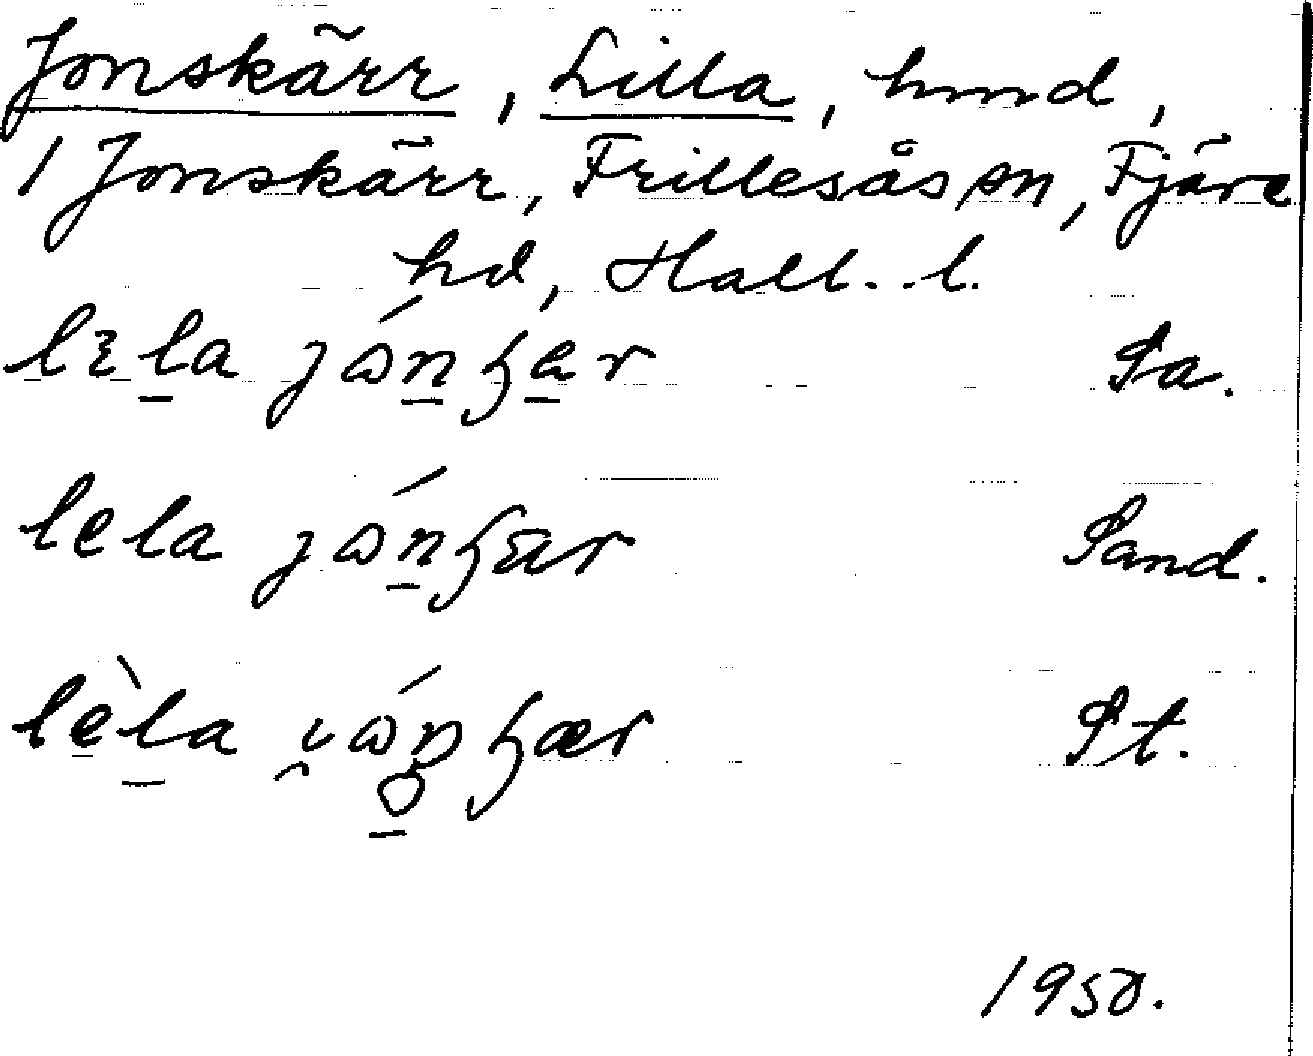 Jonskärr, Lilla, hmd,
1 Jonskärr, Frillesås sn, Fjäre
hd, Hall. l.
Sa.
lela Sand.
lèla St.
1950.